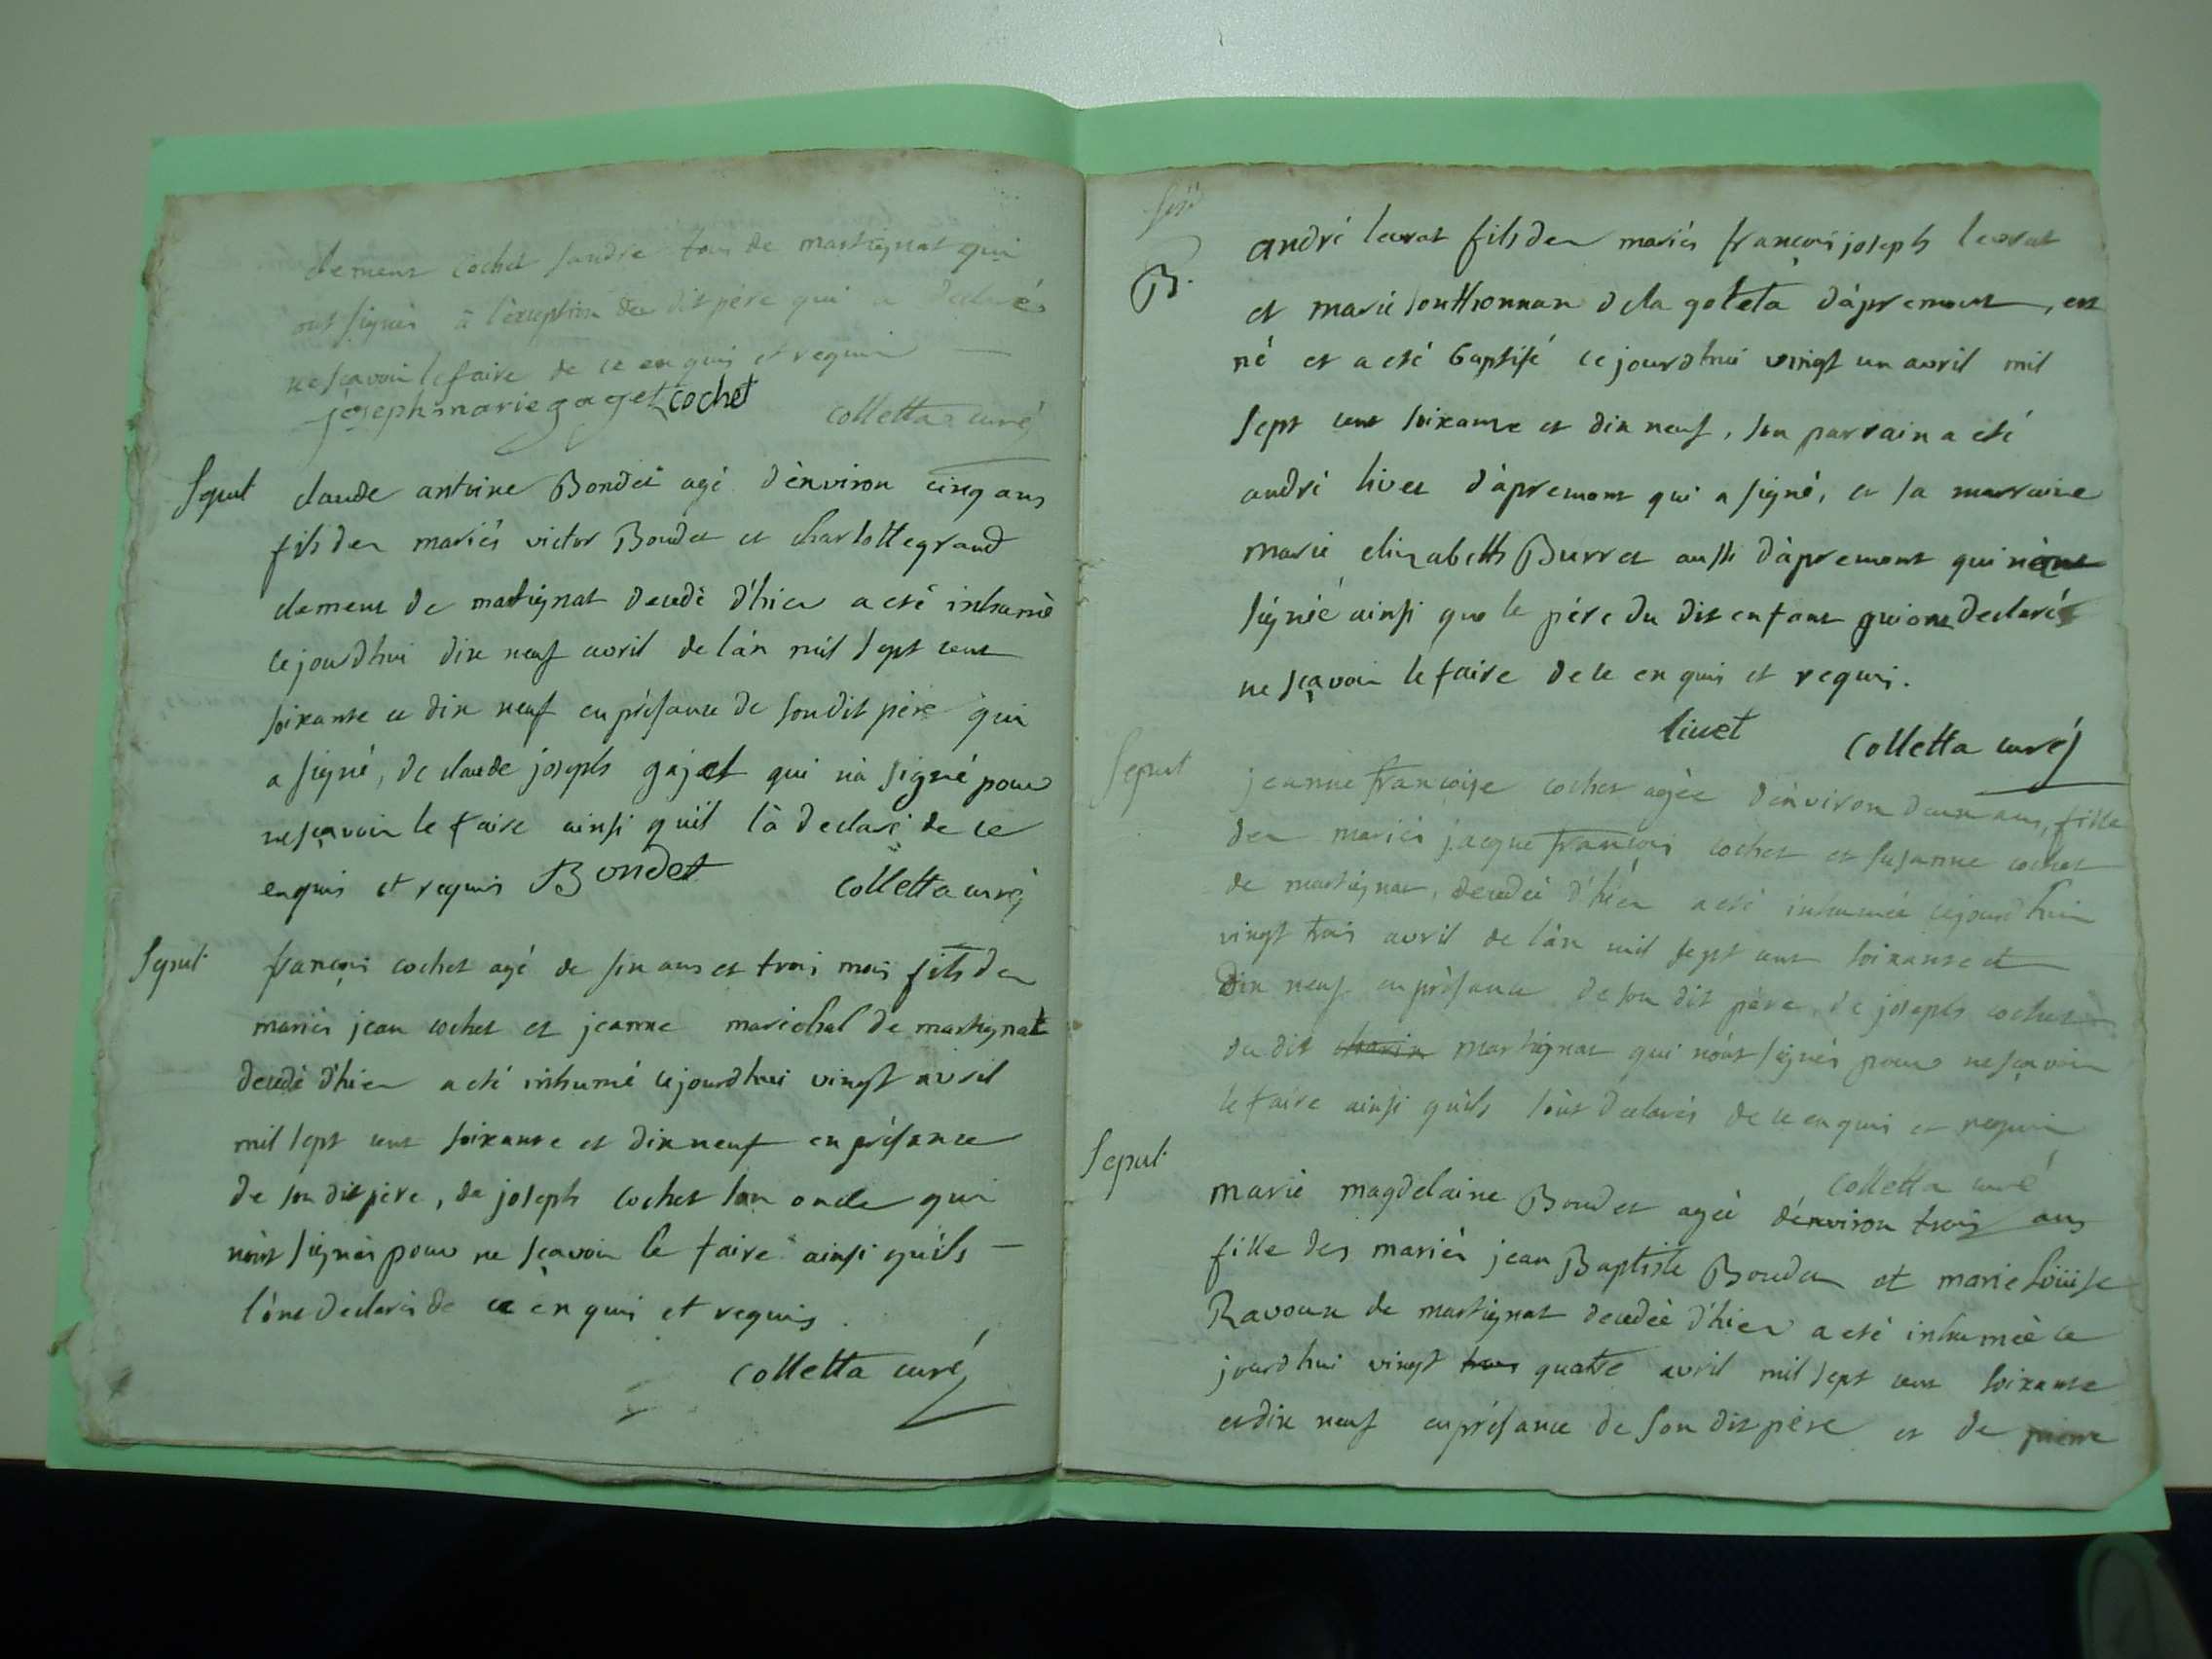 clement cochet tous de martignat qui
ont signés à l'exception du dit père qui a declarés
ne sçavoir le faire de ce enquis et requis
joseph marie gaget cochet colletta curé
Sepult claude antoine Bondet agé d'environ cinq ans
fils des mariés victor Bondet et charlotte grand
clement de martignat decedé d'hier a eté inhumé
cejourdhui dix neuf avril de l'an mil sept cent
soixante et dix neuf en présance de son dit père qui
a signé, de claude joseph gajet qui n'a signé pour
ne sçavoir le faire ainsi qu'il l'a declaré de ce
enquis et requis Bondet colletta curé
Sepult françois cochet agé de six ans et trois mois fils des
mariés jean cochet et jeanne marechal de martignat
decedé d'hier a eté inhumé cejourdhui vingt avril
mil sept cent soixante et dix neuf en présance
de son dit père, de joseph cochet son oncle qui
n'ont signés pour ne sçavoir le faire ainsi qu'ils
l'ont declarés de ce enquis et requis.
colletta curé
B. andré levrat fils des mariés françois joseph levrat
et marie southonnax de la goteta d'apremont, est
né et a eté baptisé cejourdhui vingt un avril mil
sept cent soixante et dix neuf, son parrain a eté
andré livet d'apremont qui a signé, et sa marraine
marie elizabeth Burret aussi d'apremont qui n'ont
signé ainsi que le père du dit enfant qui ont declarés
ne sçavoir le faire de ce enquis et requis.
livet colletta curé
Sepult jeanne françoise cochet agée d'environ deux ans, fille
des mariés jacque françois cochet et susanne cochet
de martignat, decedée d'hier a eté inhumée cejourdhui
vingt trois avril de l'an mil sept cent soixante et
dix neuf en présance de son dit père, de joseph cochet
du dit martignat qui n'ont signés pour ne sçavoir
le faire ainsi qu'ils l'ont declarés de ce enquis et requis
colletta curé
Sepult marie magdelaine Bondet agée d'environ trois ans
fille des mariés jean Baptiste Bondet et marie loüise
Ravoux de martignat decedée d'hier a eté inhumée ce
jourdhui vingt trois quatre avril mil sept cent soixante
et dix neuf en présance de son dit père et de pierre